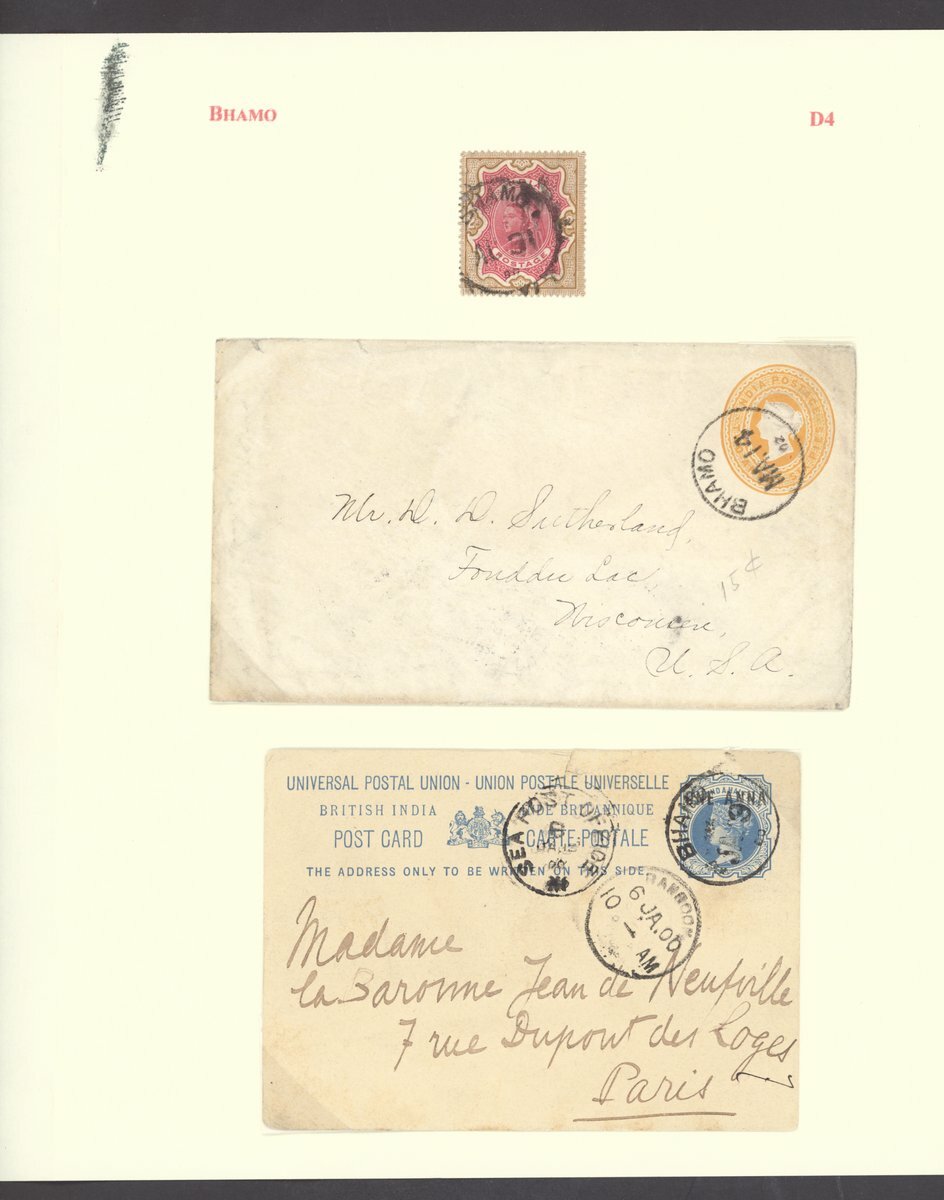 BHAMO
D4
POSTAGE
INDIA POSTAGE
BHAMO
MA 14
02
Mr. D. D. Sutherland,
Fonddu Lac,
15¢
Wisconsin,
U. S. A.
UNIVERSAL POSTAL UNION - UNION POSTALE UNIVERSELLE
BRITISH INDIA INDE BRITANNIQUE
POST CARD CARTE POSTALE
THE ADDRESS ONLY TO BE WRITTEN ON THIS SIDE
ONE ANNA
BHAMO
SEA POST OFFICE
RANGOON
6 JA.00
10 AM
Madame
la Baronne Jean de Neufville
7 rue Dupont des Loges
Paris